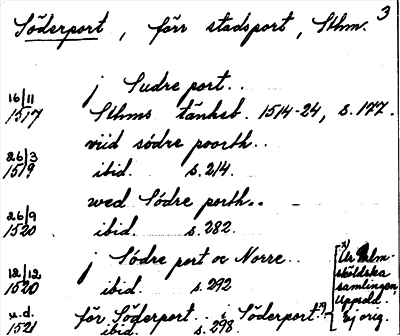 3
Söderport, förr stadsport, Sthm.
j Sudre port..
16/11
1517 Sthms tänkeb. 1514-24, s. 177.
viid södre poorth..
26/3
1519 ibid. s. 214.
wed Södre porth..
26/9
1520 ibid. s. 282.
j Södre port oc Norre..
12/12
1520 ibid. s. 292
u.d. för Söderport.. i Söderport.. x)
1521 ibid. s. 298.
x)
Ur Palm-
sköldska
samlingen,
Uppsala.
Ej orig.